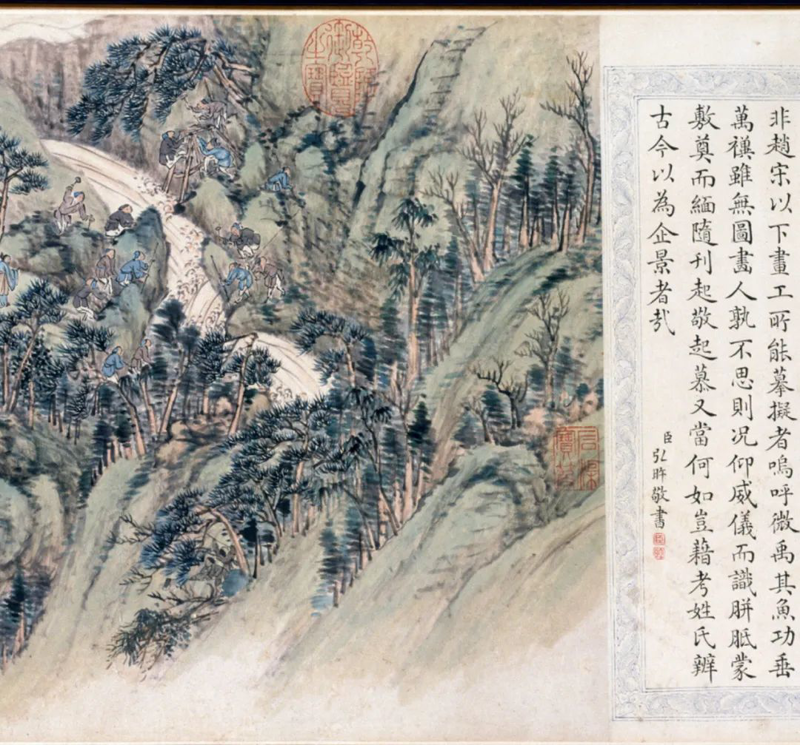 非趙宋以下畫工所能摹擬者嗚呼微禹其魚功垂
萬禩雖無圖畫人孰不思則況仰威儀而識胼胝蒙
敷奠而緬隨刊起敬起慕又當何如豈藉考姓氏辨
古今以為企景者哉
臣弘旿敬書
乾隆御覽之寶
石渠寶笈